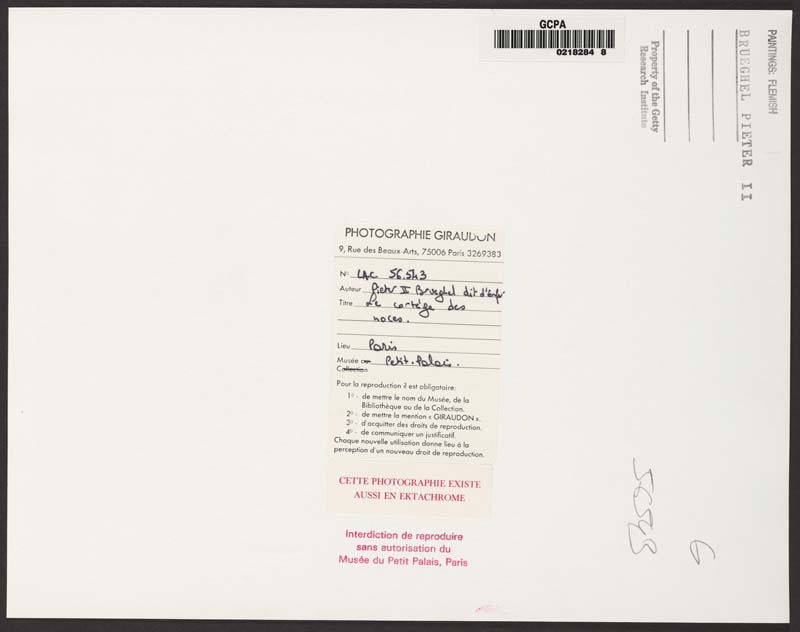 GCPA
0218284 8
PAINTINGS: FLEMISH
BRUEGHEL PIETER II
Property of the Getty
Research Institute
PHOTOGRAPHIE GIRAUDON
9, Rue des Beaux-Arts, 75006 Paris 3269383
No LAC 56.543
Auteur Pieter II Brueghel dit d'Enfer
Titre Le cortège des
noces.
Lieu Paris
Musée ou Petit-Palais.
Collection
Pour la reproduction il est obligatoire:
1o - de mettre le nom du Musée, de la
Bibliothèque ou de la Collection.
2o - de mettre la mention « GIRAUDON ».
3o - d'acquitter des droits de reproduction.
4o - de communiquer un justificatif.
Chaque nouvelle utilisation donne lieu à la
perception d'un nouveau droit de reproduction.
CETTE PHOTOGRAPHIE EXISTE
AUSSI EN EKTACHROME
Interdiction de reproduire
sans autorisation du
Musée du Petit Palais, Paris
56543
6